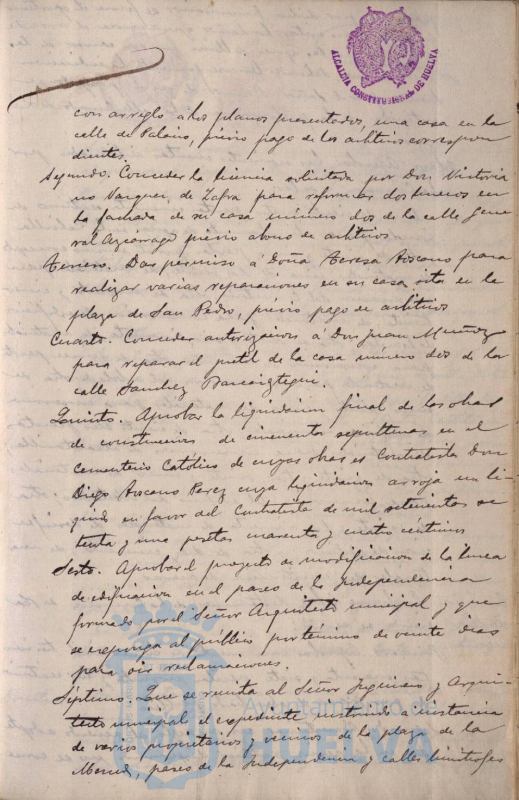 ALCALDIA CONSTITUCIONAL DE HUELVA
con arreglo a los planos presentados, una casa en la
calle de Palacio, previo pago de los arbitrios correspon
dientes.
Segundo. Conceder la licencia solicitada por Don Victoria
no Vazquez, de Zafra para reformar dos huecos en
la fachada de su casa número dos de la calle Gene
ral Azcárraga previo abono de arbitrios
Tercero. Dar permiso á Doña Teresa Toscano para
realizar varias reparaciones en su casa sita en la
plaza de San Pedro, previo pago de arbitrios
Cuarto. Conceder autorizacion á Don Juan Muñoz
para reparar el pretil de la casa número dos de la
calle Sanchez Barcaiztegui.
Quinto. Aprobar la liquidacion final de las obras
de construccion de cincuenta sepulturas en el
Cementerio Católico de cuyas obras es Contratista Don
Diego Toscano Perez cuya liquidacion arroja un li
quido en favor del Contratista de mil setecientas se
tenta y una pesetas cuarenta y cuatro céntimos
Sesto. Aprobar el proyecto de modificacion de la linea
de edificacion en el paseo de la Independencia
formado por el Señor Arquitecto municipal y que
se exponga al público por término de veinte dias
para oir reclamaciones.
Séptimo. Que se remita al Señor Ingeniero y Arqui-
tecto municipal el expediente instruido a instancia
de varios propietarios y vecinos de la plaza de la
Merced, paseo de la Independencia y calles limitrofes
Ayuntamiento de
HUELVA